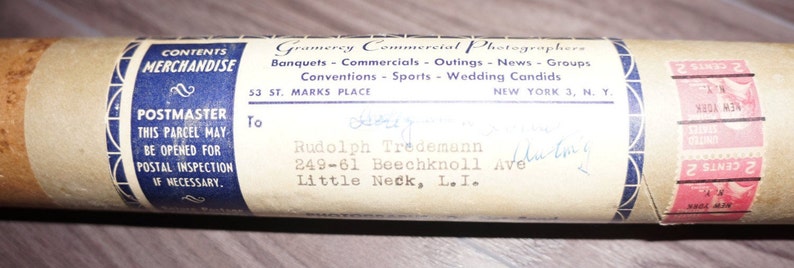 CONTENTS
MERCHANDISE
POSTMASTER
THIS PARCEL MAY
BE OPENED FOR
POSTAL INSPECTION
IF NECESSARY.
Gramercy Commercial Photographers
Banquets - Commercials - Outings - News - Groups
Conventions - Sports - Wedding Candids
53 ST. MARKS PLACE NEW YORK 3, N. Y.
To
Rudolph Tredemann
249-61 Beechknoll Ave
Little Neck, L.I.
2 CENTS 2
NEW YORK
N. Y.
UNITED
STATES
2 CENTS 2
NEW YORK
N. Y.